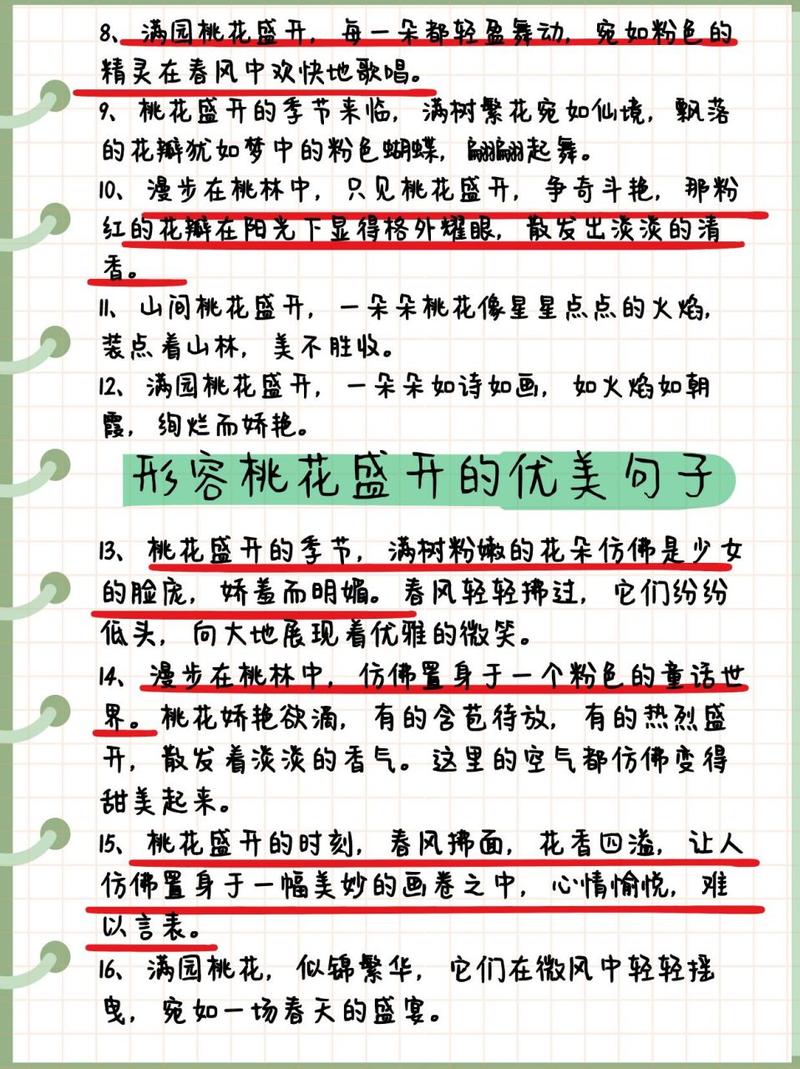 8、满园桃花盛开，每一朵都轻盈舞动，宛如粉色的
精灵在春风中欢快地歌唱。
9、桃花盛开的季节来临，满树繁花宛如仙境，飘落
的花瓣犹如梦中的粉色蝴蝶，翩翩起舞。
10、漫步在桃林中，只见桃花盛开，争奇斗艳，那粉
红的花瓣在阳光下显得格外耀眼，散发出淡淡的清
香。
11、山间桃花盛开，一朵朵桃花像星星点点的火焰，
装点着山林，美不胜收。
12、满园桃花盛开，一朵朵如诗如画，如火焰如朝
霞，绚烂而娇艳。
形容桃花盛开的优美句子
13、桃花盛开的季节，满树粉嫩的花朵仿佛是少女
的脸庞，娇羞而明媚。春风轻轻拂过，它们纷纷
低头，向大地展现着优雅的微笑。
14、漫步在桃林中，仿佛置身于一个粉色的童话世
界。桃花娇艳欲滴，有的含苞待放，有的热烈盛
开，散发着淡淡的香气。这里的空气都仿佛变得
甜美起来。
15、桃花盛开的时刻，春风拂面，花香四溢，让人
仿佛置身于一幅美妙的画卷之中，心情愉悦，难
以言表。
16、满园桃花，似锦繁华，它们在微风中轻轻摇
曳，宛如一场春天的盛宴。